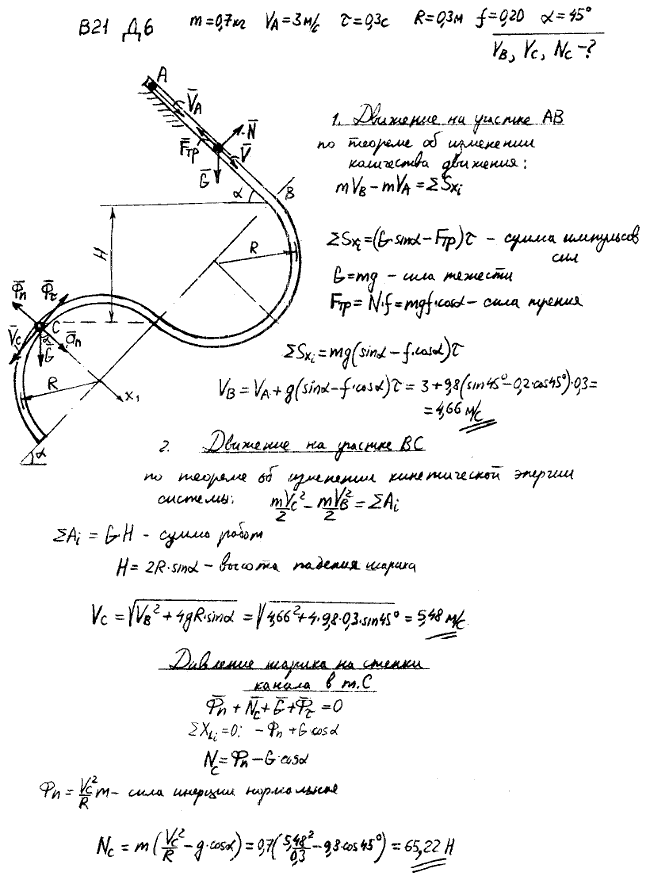 В21 Д6 m=0,7кг V_A=3м/с τ=0,3с R=0,3м f=0,20 α=45°
V_B, V_C, N_C -?
A
V̄_A
N̄
F̄тр
V̄
Ḡ
α
B
H
R
Φ̄n
Φ̄τ
C
V̄_C
ā_n
α
Ḡ
R
x₁
α
1. Движение на участке АВ
по теореме об изменении
количества движения:
mV_B - mV_A = ΣS_xi
ΣS_xi = (G sinα - Fтр)τ - сумма импульсов
сил
G = mg - сила тяжести
Fтр = N·f = mgf·cosα - сила трения
ΣS_xi = mg(sinα - f·cosα)τ
V_B = V_A + g(sinα - f·cosα)τ = 3 + 9,8(sin45° - 0,2·cos45°)·0,3 =
= 4,66 м/с
2. Движение на участке ВС
по теореме об изменении кинетической энергии
системы: mV_C²/2 - mV_B²/2 = ΣA_i
ΣA_i = G·H - сумма работ
H = 2R·sinα - высота падения шарика
V_C = √(V_B² + 4gR·sinα) = √(4,66² + 4·9,8·0,3·sin45°) = 5,48 м/с
Давление шарика на стенки
канала в т.С
Φ̄n + N̄_C + Ḡ + Φ̄τ = 0
ΣX_1i = 0: -Φn + G·cosα
N_C = Φn - G·cosα
Φn = V_C²/R m - сила инерции нормальная
N_C = m(V_C²/R - g·cosα) = 0,7(5,48²/0,3 - 9,8·cos45°) = 65,22 Н